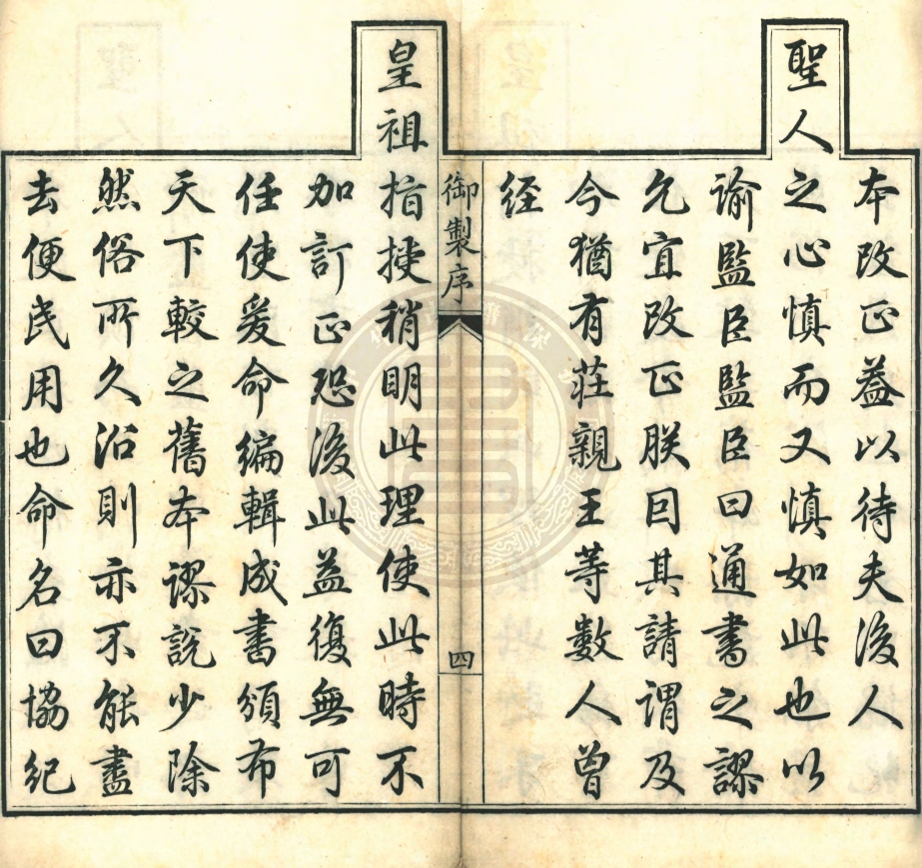 本改正蓋以待夫後人
聖人之心慎而又慎如此也以
諭監臣監臣曰通書之謬
允宜改正朕因其請謂及
今猶有莊親王等數人曾
经
御製序
四
皇祖指授稍明此理使此時不
加訂正恐後此益復無可
任使爰命編輯成書頒布
天下較之舊本謬說少除
然俗所久沿則亦不能盡
去便民用也命名曰協紀